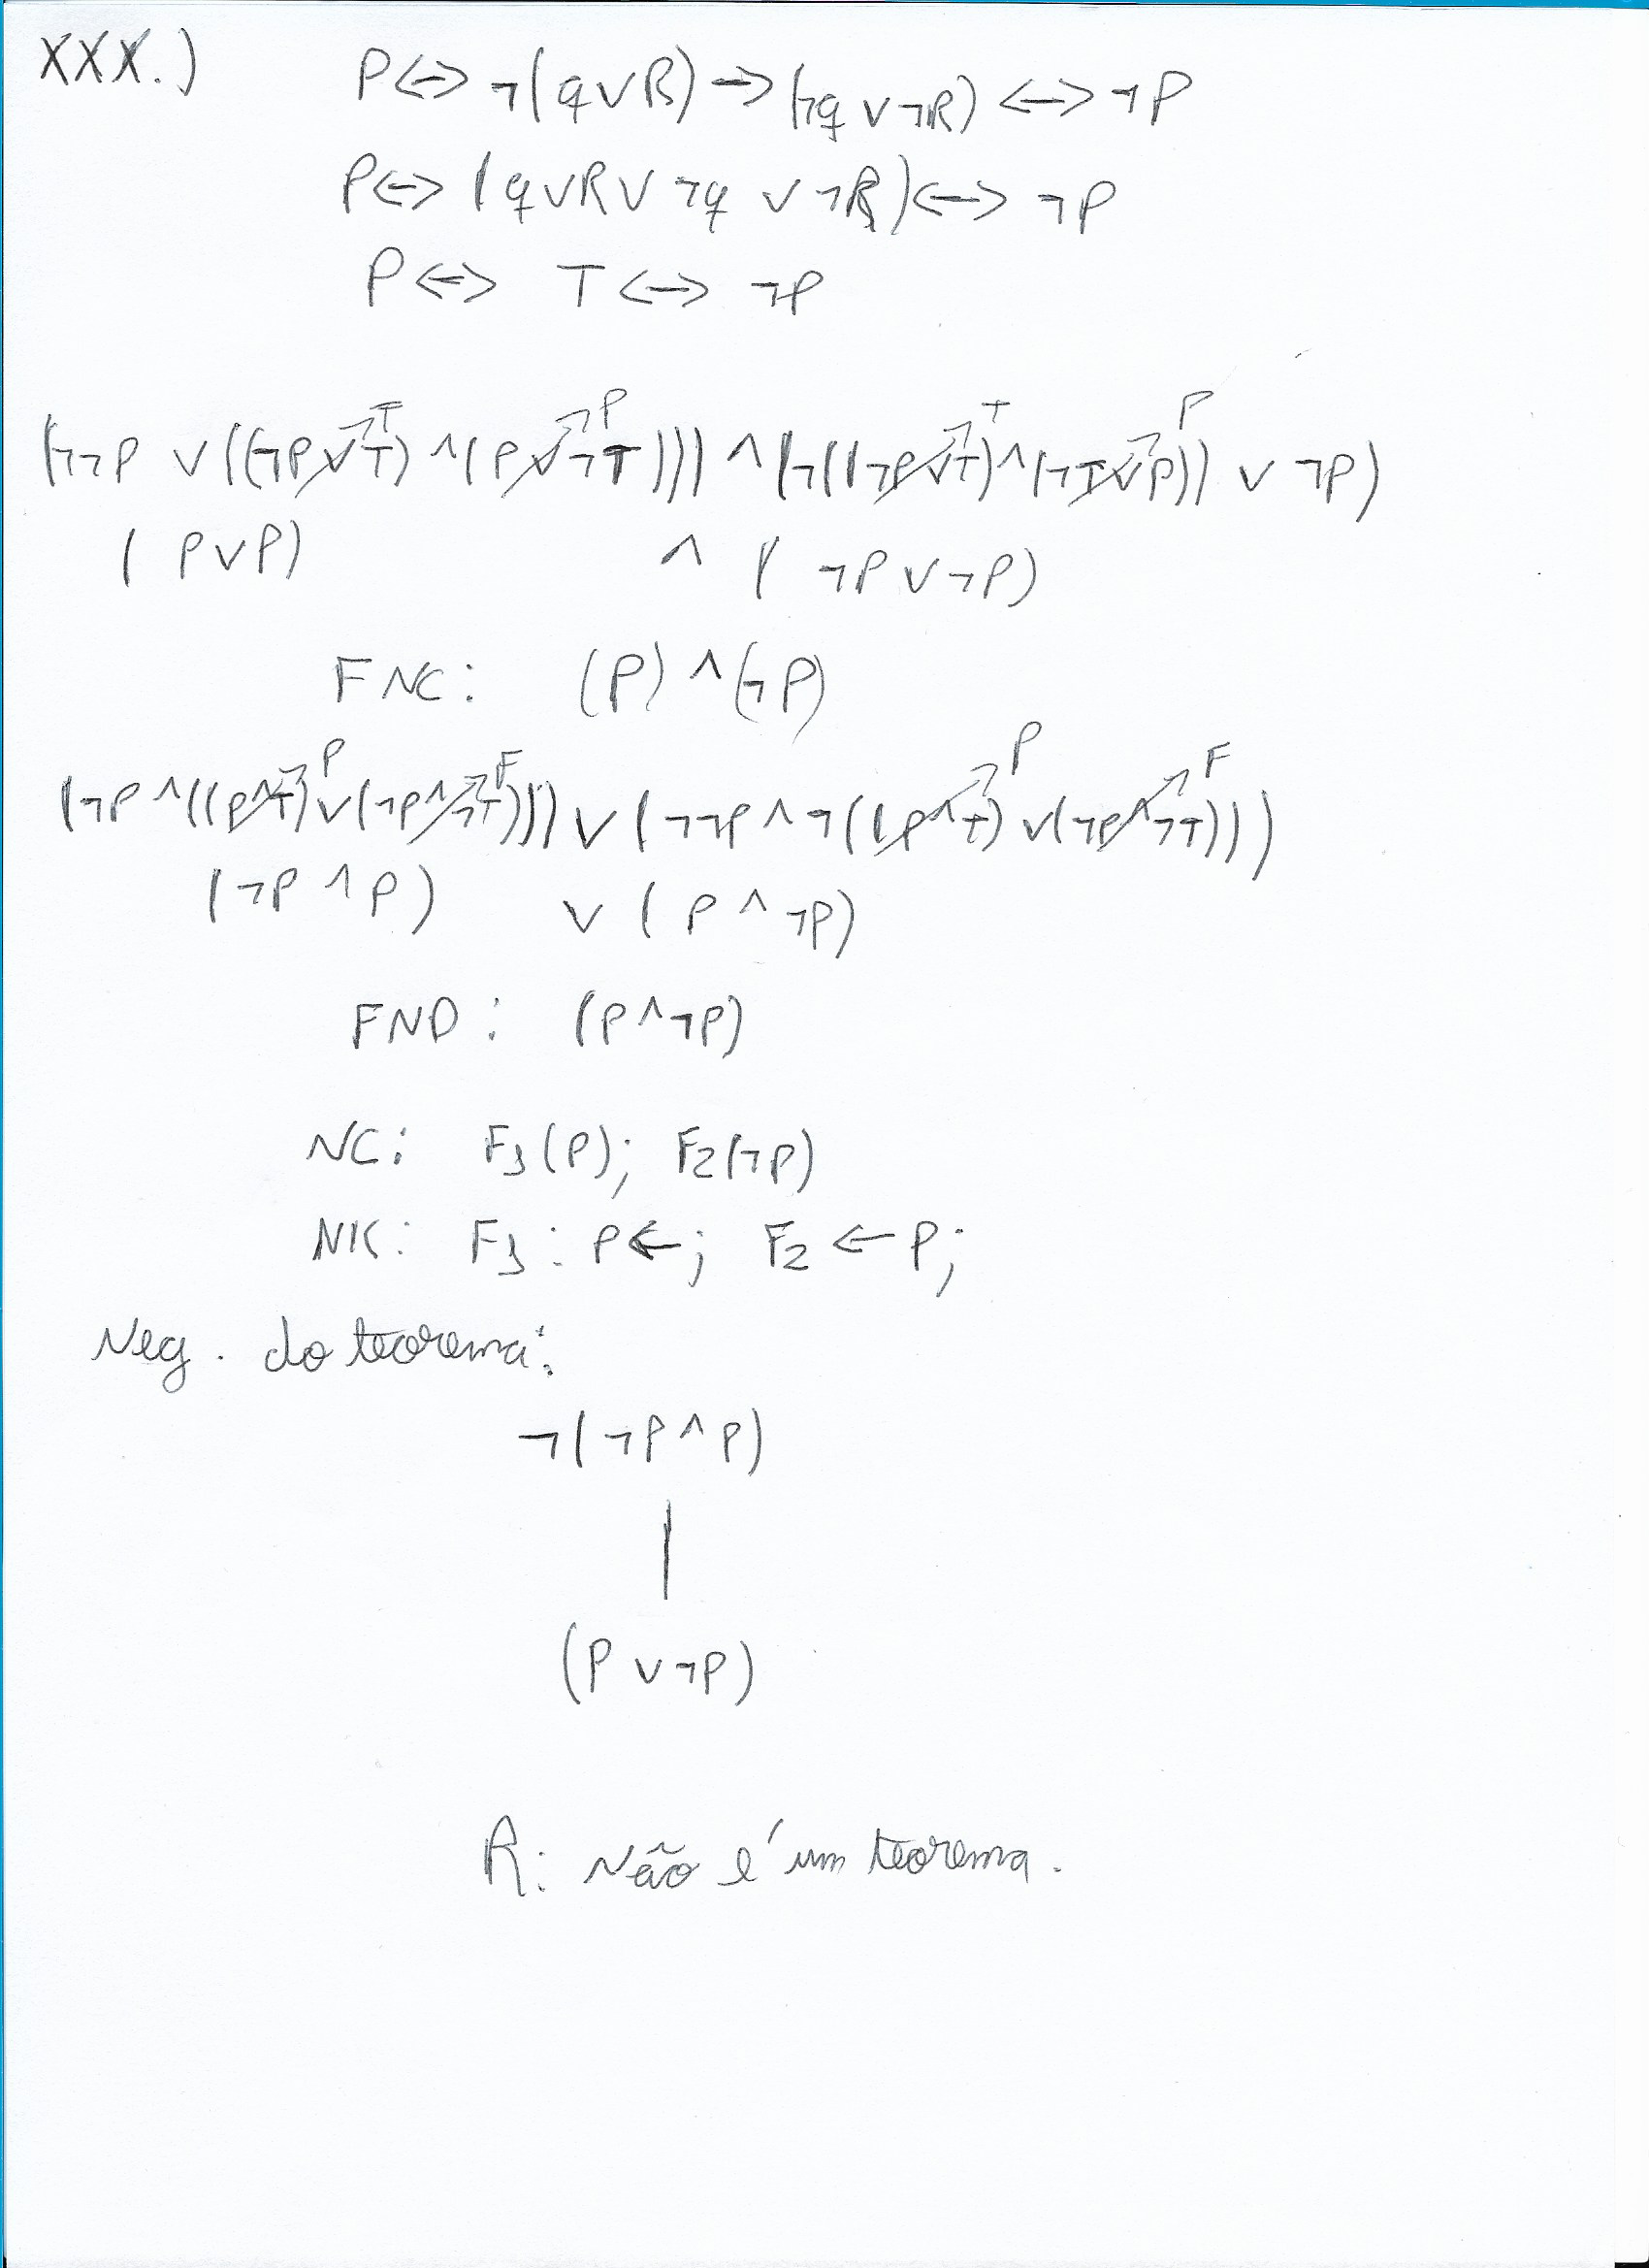 XXX.) P<->¬(q∨R)->(¬q∨¬R)<->¬P
P<->(q∨R∨¬q∨¬R)<->¬P
P<-> T<->¬P
T P T P
(¬¬P∨((¬P∨T)∧(P∨¬T)))∧(¬((¬P∨T)∧(¬T∨P))∨¬P)
(P∨P) ∧ (¬P∨¬P)
FNC: (P)∧(¬P)
P F P F
(¬P∧((P∧T)∨(¬P∧¬T)))∨(¬¬P∧¬((P∧T)∨(¬P∧¬T)))
(¬P∧P) ∨ (P∧¬P)
FND: (P∧¬P)
NC: F1(P); F2(¬P)
NK: F1: P←; F2←P;
Neg. do teorema:
¬(¬P∧P)
|
(P∨¬P)
R: Não é um teorema.